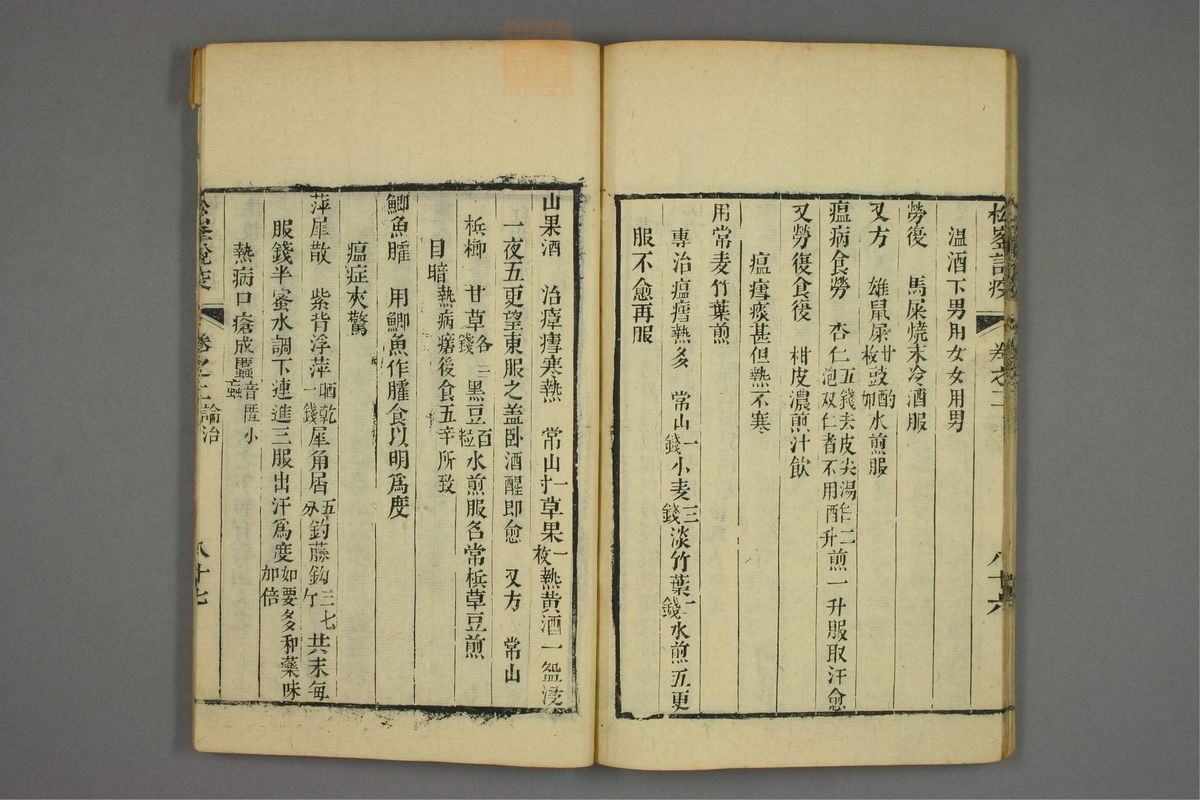 松峯說疫 卷之二 八十六
溫酒下男用女女用男
勞後 馬屎燒末冷酒服
又方 雄鼠屎廿枚豉酌加水煎服
瘟病食勞 杏仁五錢去皮尖湯泡双仁者不用酢二升煎一升服取汗愈
又勞復食後 柑皮濃煎汁飲
瘟瘧痰甚但熱不寒
用常麦竹葉煎
專治瘟瘧熱多 常山一錢小麦三錢淡竹葉一錢水煎五更
服不愈再服
山果酒 治瘴瘧寒熱 常山一寸草果一枚熱黄酒一盌浸
一夜五更望東服之盖卧酒醒即愈 又方 常山
梹榔 甘草各二錢黑豆百粒水煎服名常梹草豆煎
目暗熱病瘥後食五辛所致
鯽魚臛 用鯽魚作臛食以明爲度
瘟症夾驚
萍犀散 紫背浮萍晒乾一錢犀角屑五分釣藤鈎三七个共末每
服錢半蜜水調下連進三服出汗爲度如要多和藥味加倍
熱病口瘡成䘌音匿小蟲
松峯說疫 卷之二論治 八十七